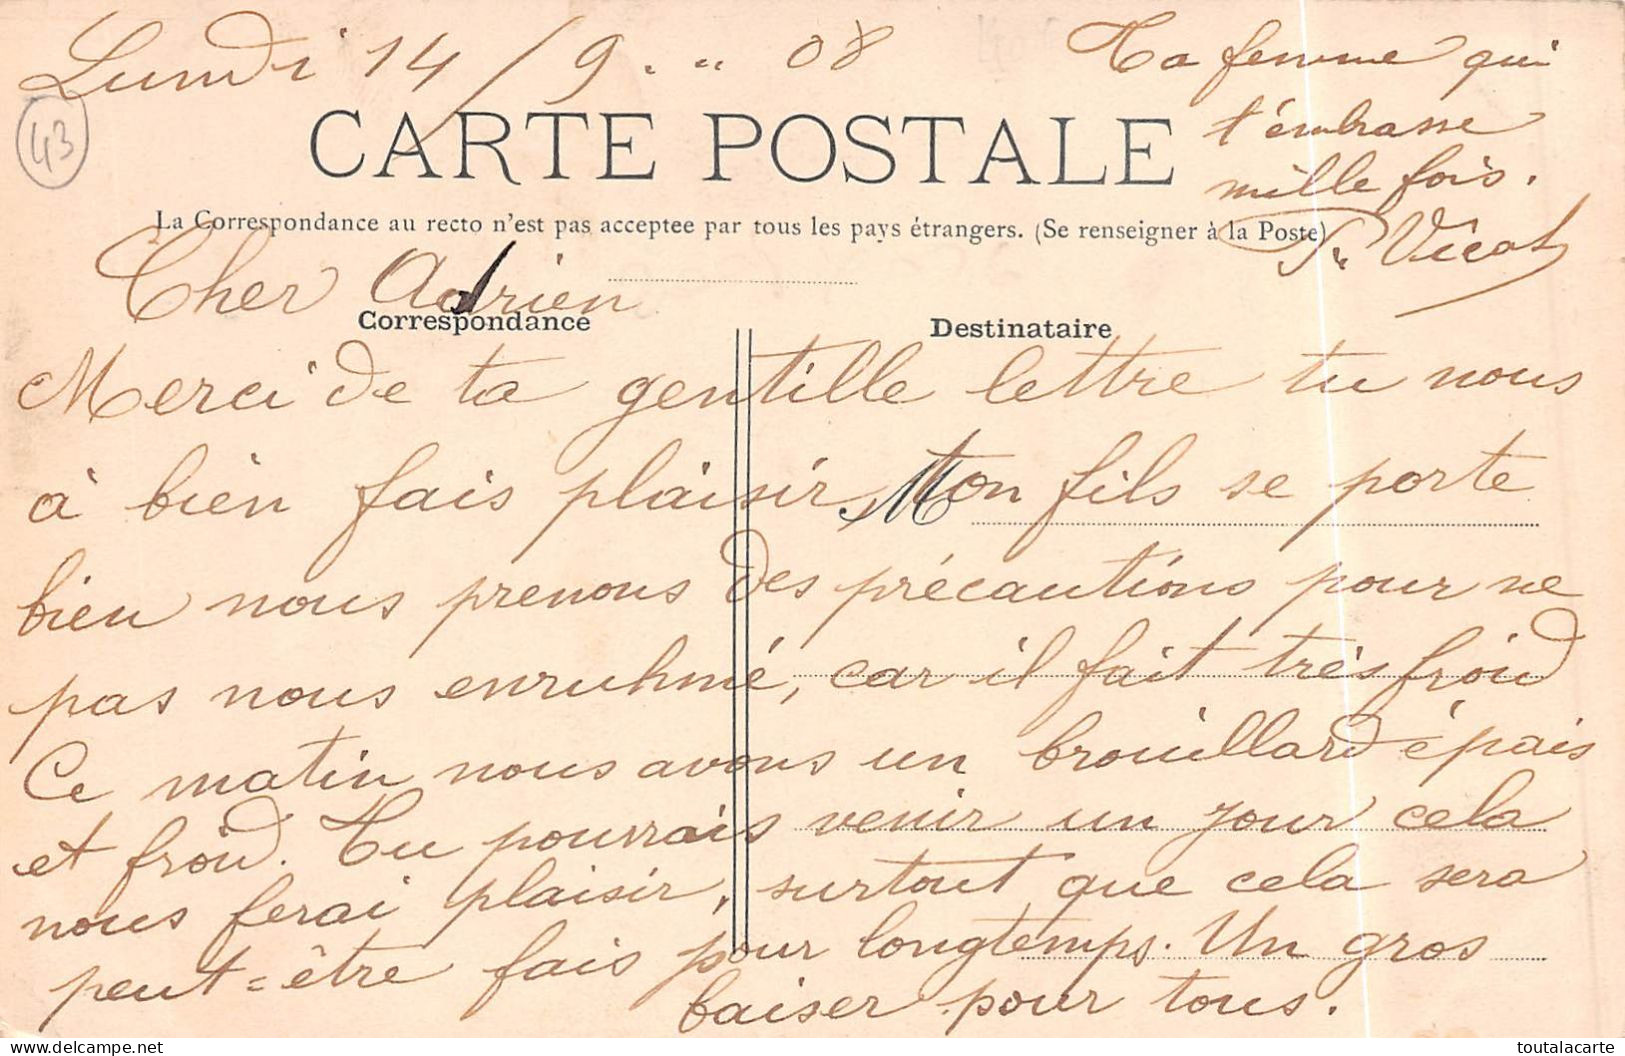 Lundi 14/9 . " 08
43
CARTE POSTALE
La Correspondance au recto n'est pas acceptee par tous les pays étrangers. (Se renseigner à la Poste)
Cher Adrien
Correspondance
Destinataire
Merci de ta gentille lettre tu nous
à bien fais plaisir, Ton fils se porte
bien nous prenons des précautions pour ne
pas nous enruhmé, car il fait très froid
Ce matin nous avons un brouillard épais
et froid. Tu pourrais venir un jour cela
nous ferai plaisir, surtout que cela sera
peut=être fais pour longtemps. Un gros
baiser pour tous.
Ta femme qui
t'émbrasse
mille fois.
Vicat
toutalacarte